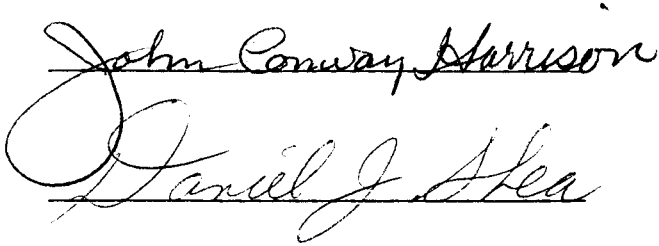 John Conway Harrison
Daniel J. Shea